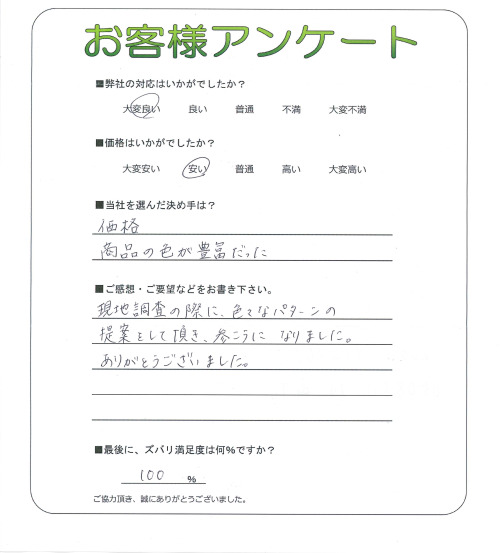 お客様アンケート
■弊社の対応はいかがでしたか？
大変良い 良い 普通 不満 大変不満
■価格はいかがでしたか？
大変安い 安い 普通 高い 大変高い
■当社を選んだ決め手は？
価格
商品の色が豊富だった
■ご感想・ご要望などをお書き下さい。
現地調査の際に、色々なパターンの
提案をして頂き、参こうに なりました。
ありがとうございました。
■最後に、ズバリ満足度は何%ですか？
100 %
ご協力頂き、誠にありがとうございました。